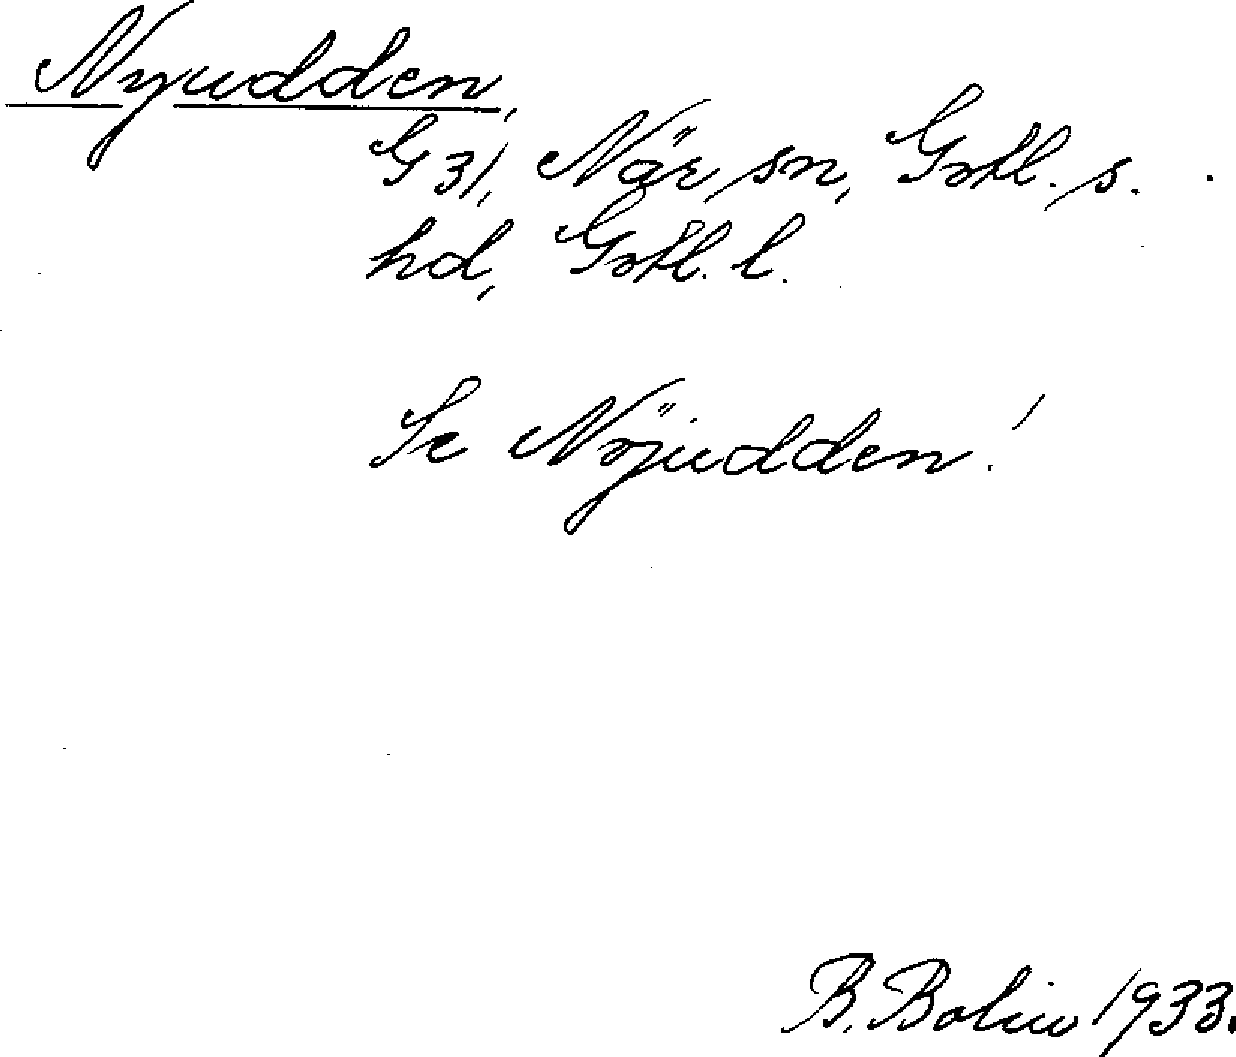 Nyudden,
G 31, När sn, Gotl. s.
hd, Gotl. l.
Se Nöjudden!
B. Bolin 1933.